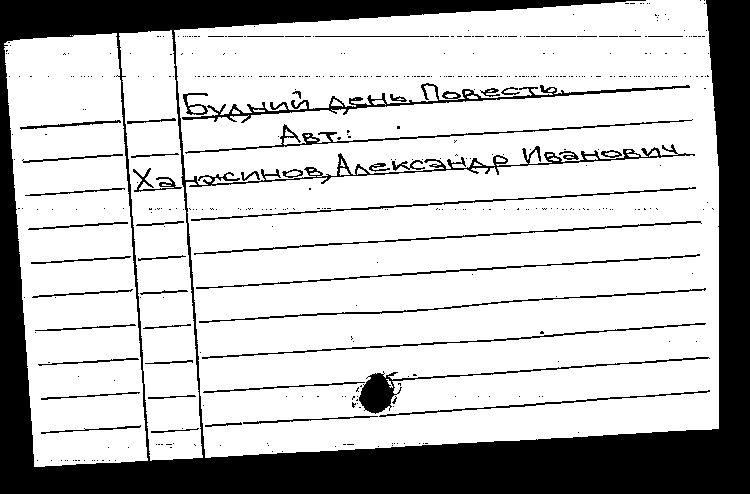 Будний день. Повесть.
Авт.:
Ханжинов, Александр Иванович